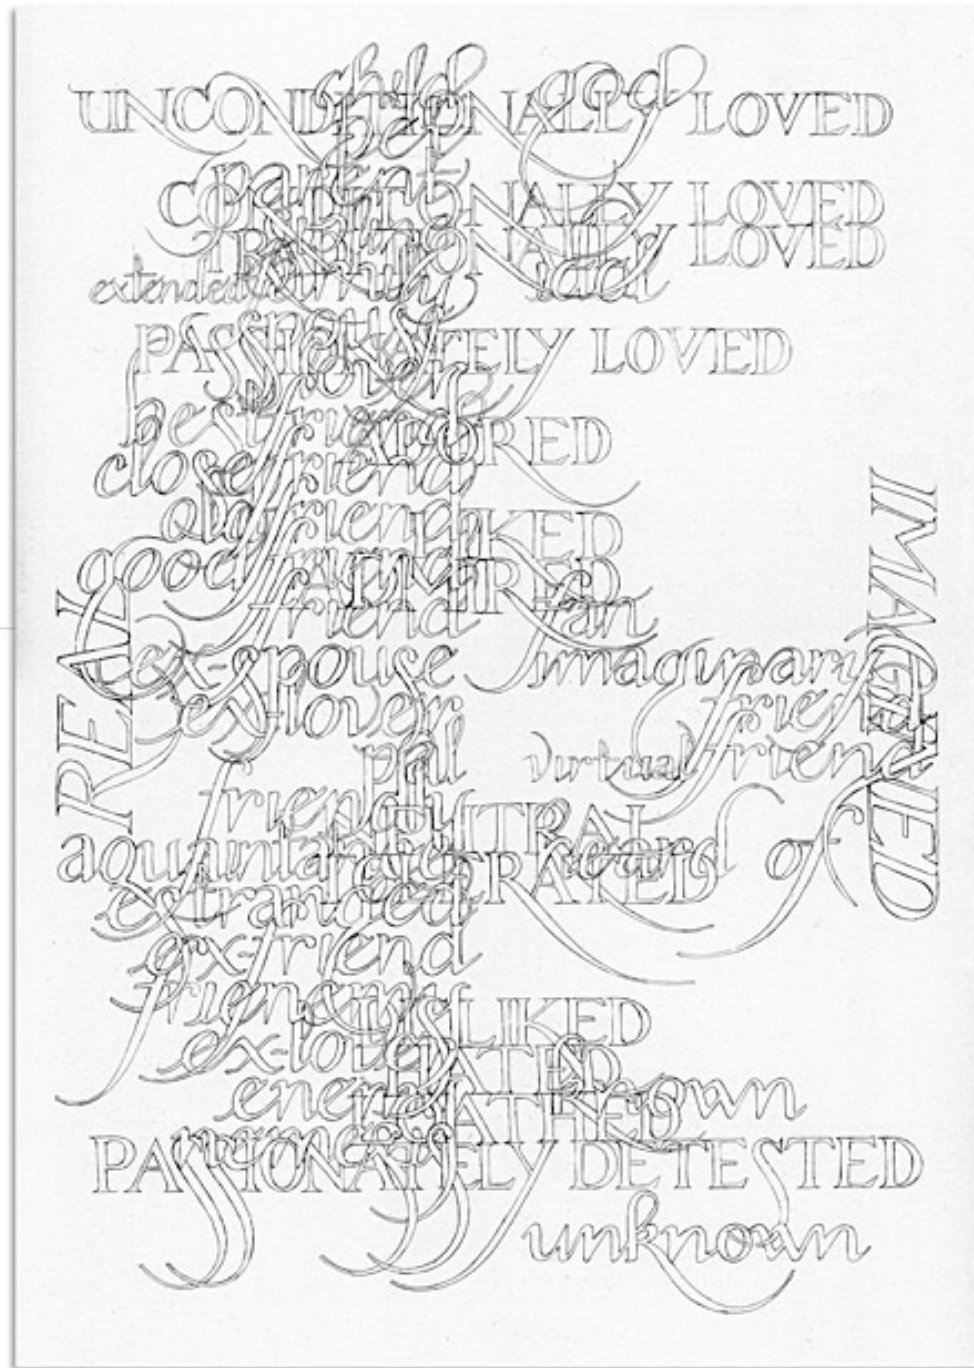 child god
UNCONDITIONALLY LOVED
pet
parent
CONDITIONALLY LOVED
sibling
TRADITIONALLY LOVED
extended family idol
spouse
PASSIONATELY LOVED
lover
best friend
ADORED
close friend
old friend
LIKED
good friend
ADMIRED
friend fan
REAL
IMAGINED
ex-spouse imaginary
friend
ex-lover
pal virtual friend
friendly
NEUTRAL
aquaintance heard of
TOLERATED
estranged
ex-friend
frienemy
DISLIKED
ex-lover
HATED
enemy known
LOATHED
nemesis
PASSIONATELY DETESTED
unknown